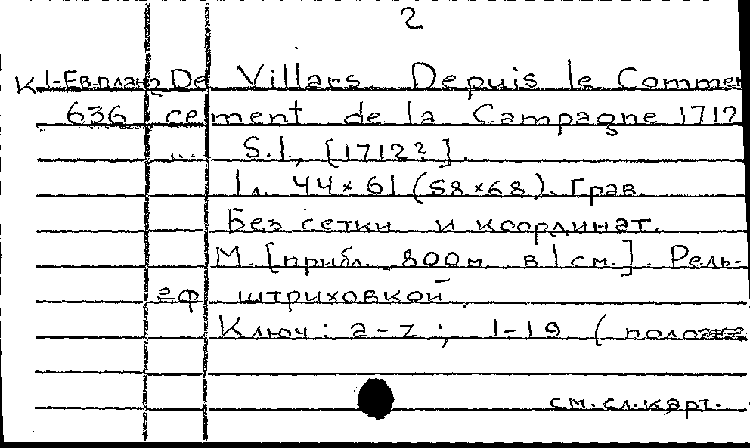 2
К 1-Ев.план De Villars Depuis le Commen
636 cement de la Campagne 1712
... S.l., [1712?].
1 л. 44×61 (58×68). Грав.
Без сетки и координат.
М. [прибл. 800 м в 1 см.]. Рель-
еф штриховкой.
Ключ: a-z; 1-19 (
см. сл. карт.